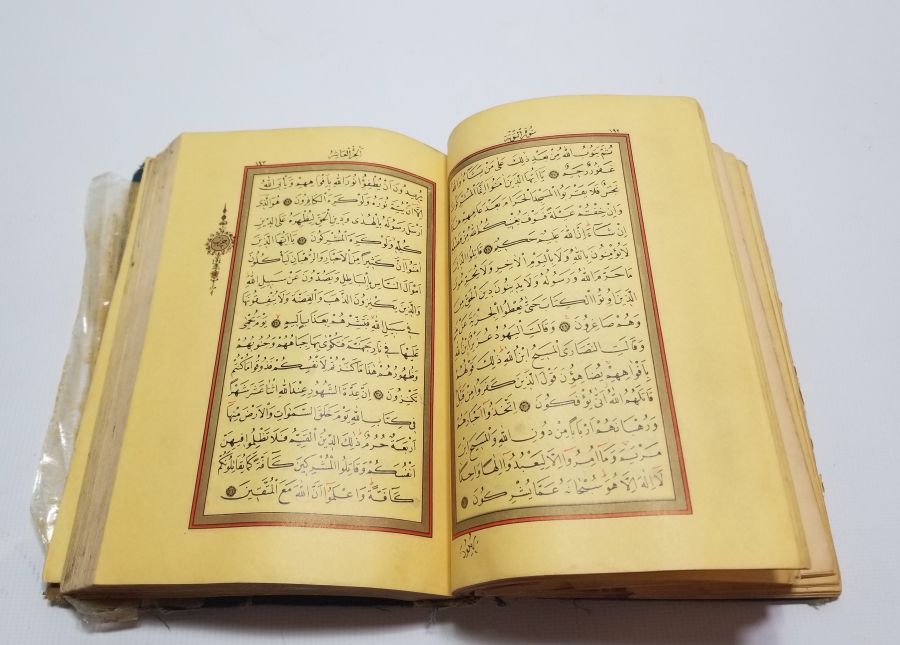 سُورَةُ التَّوْبَةِ
ثُمَّ يَتُوبُ اللّٰهُ مِنْ بَعْدِ ذٰلِكَ عَلٰى مَنْ يَشَاءُ وَاللّٰهُ
غَفُورٌ رَحِيمٌ يَا اَيُّهَا الَّذِينَ اٰمَنُوا اِنَّمَا الْمُشْرِكُونَ
نَجَسٌ فَلَا يَقْرَبُوا الْمَسْجِدَ الْحَرَامَ بَعْدَ عَامِهِمْ هٰذَا
وَاِنْ خِفْتُمْ عَيْلَةً فَسَوْفَ يُغْنِيكُمُ اللّٰهُ مِنْ فَضْلِهِ
اِنْ شَاءَ اِنَّ اللّٰهَ عَلِيمٌ حَكِيمٌ قَاتِلُوا الَّذِينَ
لَا يُؤْمِنُونَ بِاللّٰهِ وَلَا بِالْيَوْمِ الْاٰخِرِ وَلَا يُحَرِّمُونَ
مَا حَرَّمَ اللّٰهُ وَرَسُولُهُ وَلَا يَدِينُونَ دِينَ الْحَقِّ مِنَ
الَّذِينَ اُوتُوا الْكِتَابَ حَتّٰى يُعْطُوا الْجِزْيَةَ عَنْ يَدٍ
وَهُمْ صَاغِرُونَ وَقَالَتِ الْيَهُودُ عُزَيْرٌ ابْنُ اللّٰهِ
وَقَالَتِ النَّصَارَى الْمَسِيحُ ابْنُ اللّٰهِ ذٰلِكَ قَوْلُهُمْ
بِاَفْوَاهِهِمْ يُضَاهِؤُنَ قَوْلَ الَّذِينَ كَفَرُوا مِنْ قَبْلُ
قَاتَلَهُمُ اللّٰهُ اَنّٰى يُؤْفَكُونَ اِتَّخَذُوا اَحْبَارَهُمْ
وَرُهْبَانَهُمْ اَرْبَابًا مِنْ دُونِ اللّٰهِ وَالْمَسِيحَ ابْنَ
مَرْيَمَ وَمَا اُمِرُوا اِلَّا لِيَعْبُدُوا اِلٰهًا وَاحِدًا
لَا اِلٰهَ اِلَّا هُوَ سُبْحَانَهُ عَمَّا يُشْرِكُونَ
يُرِيدُونَ
اَلْجُزْءُ الْعَاشِرُ
١٩٢
يُرِيدُونَ اَنْ يُطْفِؤُا نُورَ اللّٰهِ بِاَفْوَاهِهِمْ وَيَاْبَى اللّٰهُ
اِلَّا اَنْ يُتِمَّ نُورَهُ وَلَوْ كَرِهَ الْكَافِرُونَ هُوَ الَّذِي
اَرْسَلَ رَسُولَهُ بِالْهُدٰى وَدِينِ الْحَقِّ لِيُظْهِرَهُ عَلَى الدِّينِ
كُلِّهِ وَلَوْ كَرِهَ الْمُشْرِكُونَ يَا اَيُّهَا الَّذِينَ
اٰمَنُوا اِنَّ كَثِيرًا مِنَ الْاَحْبَارِ وَالرُّهْبَانِ لَيَاْكُلُونَ
اَمْوَالَ النَّاسِ بِالْبَاطِلِ وَيَصُدُّونَ عَنْ سَبِيلِ اللّٰهِ
وَالَّذِينَ يَكْنِزُونَ الذَّهَبَ وَالْفِضَّةَ وَلَا يُنْفِقُونَهَا
فِي سَبِيلِ اللّٰهِ فَبَشِّرْهُمْ بِعَذَابٍ اَلِيمٍ يَوْمَ يُحْمٰى
عَلَيْهَا فِي نَارِ جَهَنَّمَ فَتُكْوٰى بِهَا جِبَاهُهُمْ وَجُنُوبُهُمْ
وَظُهُورُهُمْ هٰذَا مَا كَنَزْتُمْ لِاَنْفُسِكُمْ فَذُوقُوا مَا كُنْتُمْ
تَكْنِزُونَ اِنَّ عِدَّةَ الشُّهُورِ عِنْدَ اللّٰهِ اثْنَا عَشَرَ شَهْرًا
فِي كِتَابِ اللّٰهِ يَوْمَ خَلَقَ السَّمٰوَاتِ وَالْاَرْضَ مِنْهَا
اَرْبَعَةٌ حُرُمٌ ذٰلِكَ الدِّينُ الْقَيِّمُ فَلَا تَظْلِمُوا فِيهِنَّ
اَنْفُسَكُمْ وَقَاتِلُوا الْمُشْرِكِينَ كَافَّةً كَمَا يُقَاتِلُونَكُمْ
كَافَّةً وَاعْلَمُوا اَنَّ اللّٰهَ مَعَ الْمُتَّقِينَ